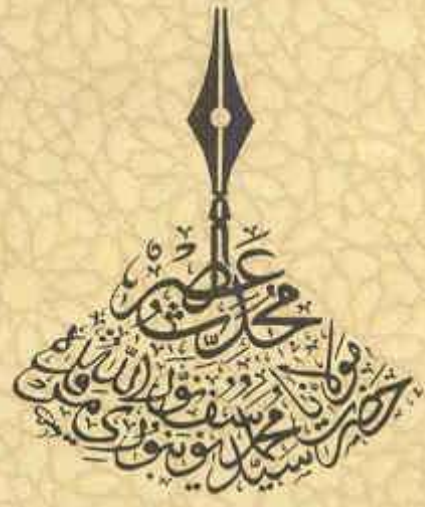 محدّث عصر
حضرت مولانا سیّد محمّد یوسف بنوری نور اللہ مرقدہ